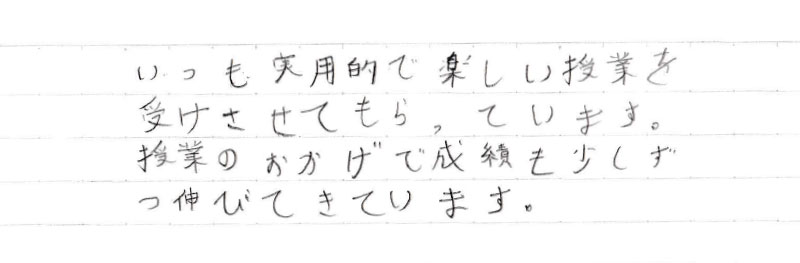 いつも実用的で楽しい授業を
受けさせてもらっています。
授業のおかげで成績も少しず
つ伸びてきています。